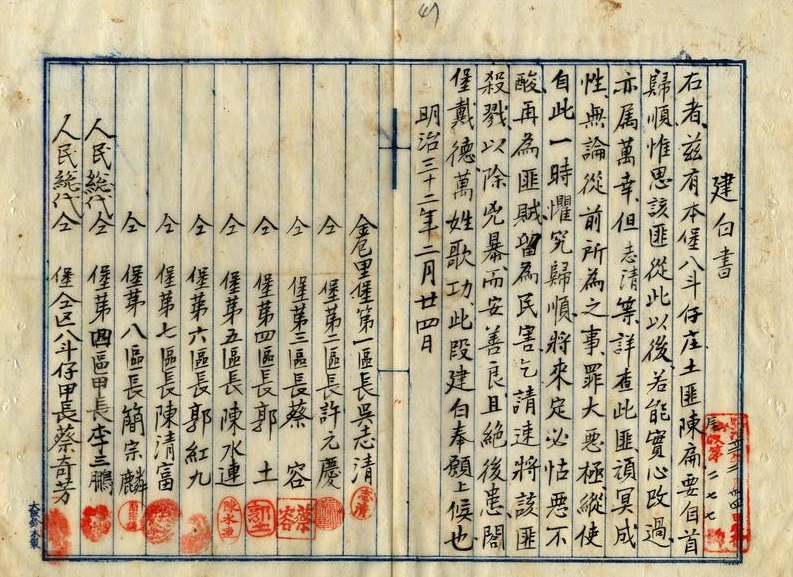 建白書
右者茲有本堡八斗仔庄土匪陳扁要自首
歸順惟思該匪從此以後若能實心改過
亦属萬幸但志清等詳查此匪頑冥成
性無論從前所為之事罪大惡極縱使
自此一時懼究歸順將來定必怙惡不
酸再為匪賊留為民害乞請速將該匪
殺戮以除兇暴而安善良且絕後患閤
堡戴德萬姓歌功此段建白奉願上候也
明治三十二年二月廿四日
金包里堡第一區長吳志清
仝 堡第二區長許元慶
仝 堡第三區長蔡容
仝 堡第四區長郭土
仝 堡第五區長陳水連
仝 堡第六區長郭紅九
仝 堡第七區長陳清富
仝 堡第八區長簡宗麟
人民総代仝 堡第四區甲長李三鵬
人民総代仝 堡仝区八斗仔甲長蔡奇芳